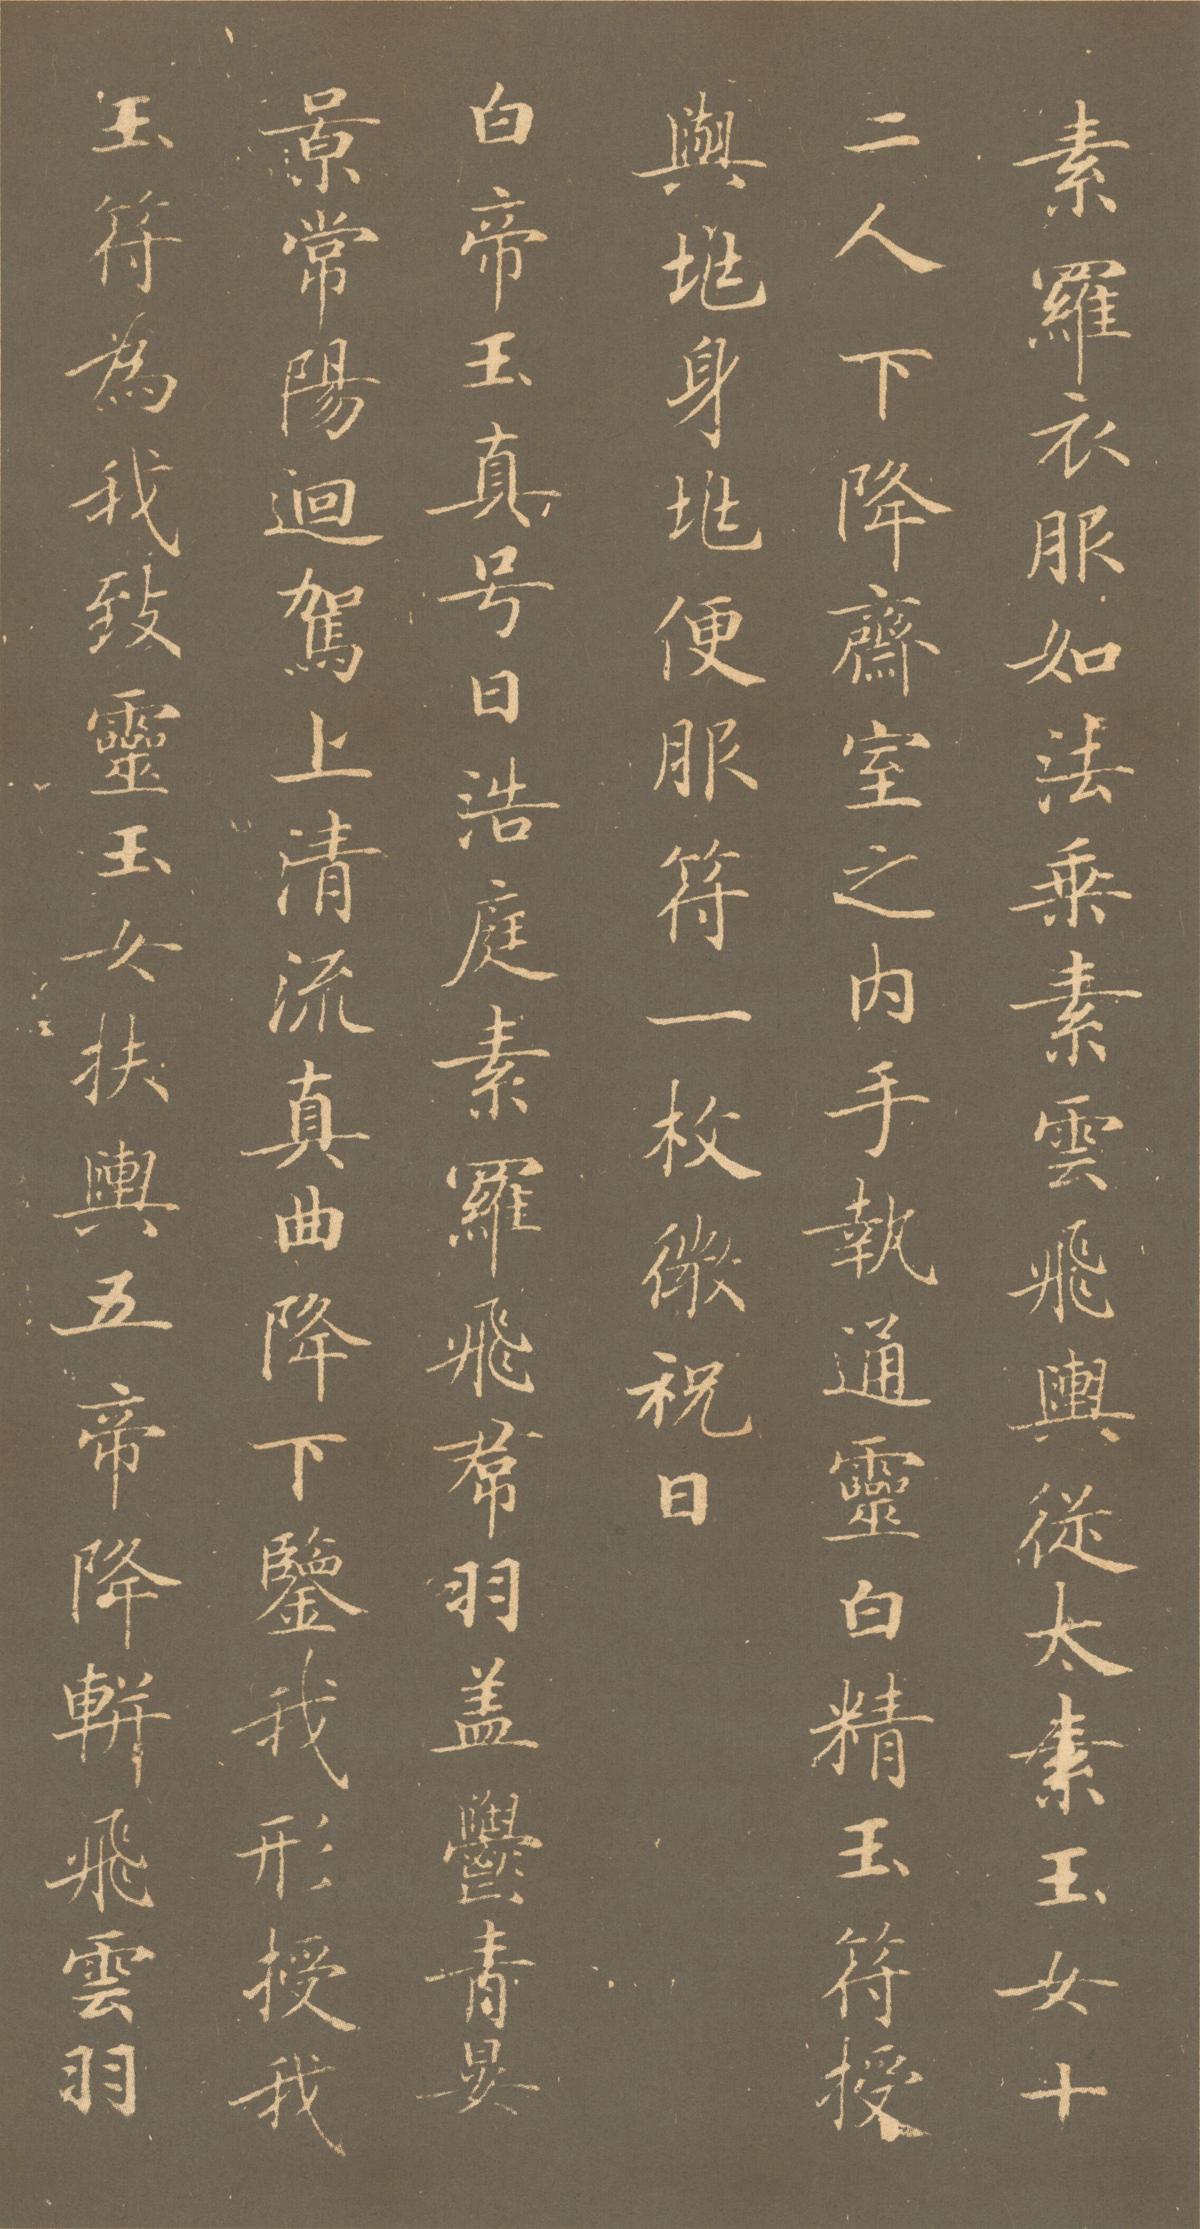 素羅衣服如法乘素雲飛輿從太素玉女十
二人下降齋室之內手執通靈白精玉符授
與兆身兆便服符一枚微祝曰
白帝玉真号曰浩庭素羅飛帬羽盖鬱青晏
景常陽迴駕上清流真曲降下鑒我形授我
玉符為我致靈玉女扶輿五帝降軿飛雲羽